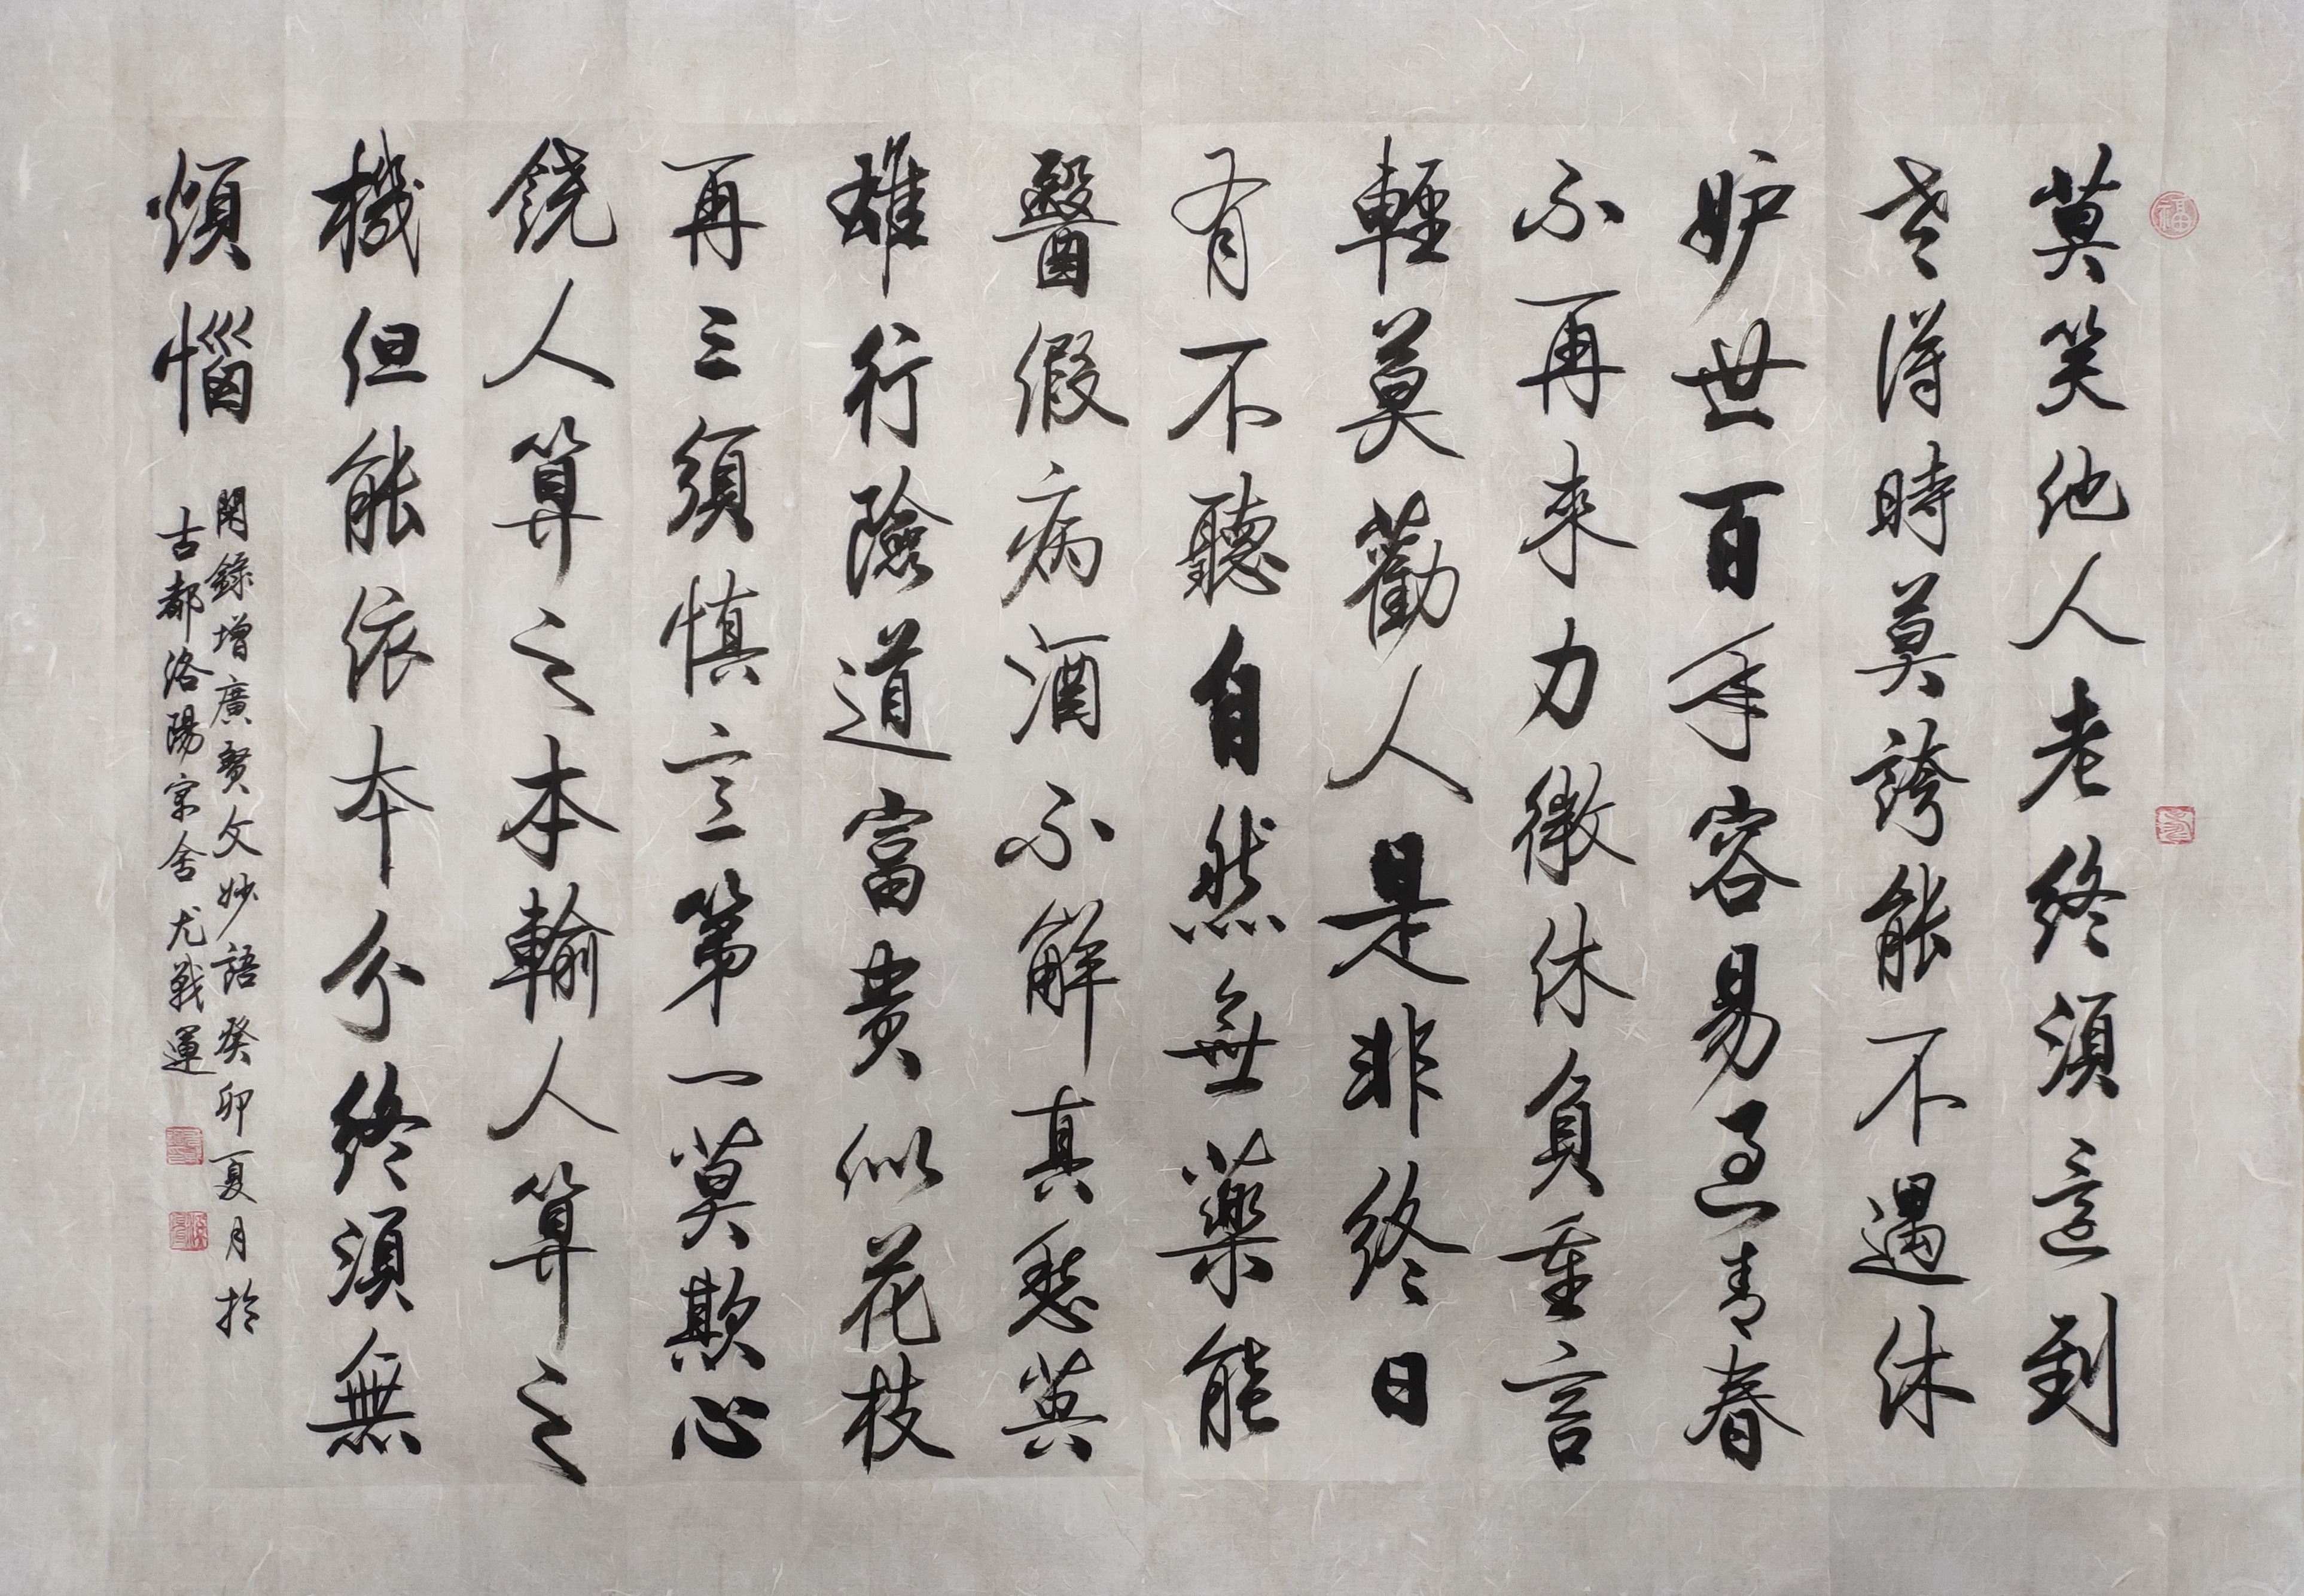 莫笑他人老終須還到
老得時莫誇能不遇休
妒世百年容易過青春
不再來力微休負重言
輕莫勸人是非終日
有不聽自然無藥能
醫假病酒不解真愁英
雄行險道富貴似花枝
再三須慎意第一莫欺心
饒人算之本輸人算之
機但能依本分終須無
煩惱
閑錄增廣賢文妙語癸卯夏月於
古都洛陽舍尤戰運
福